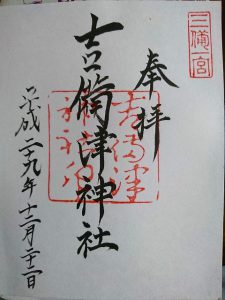 三備一宮
奉拝
吉備津神社
吉備津
神社印
平成二十九年十二月二十二日